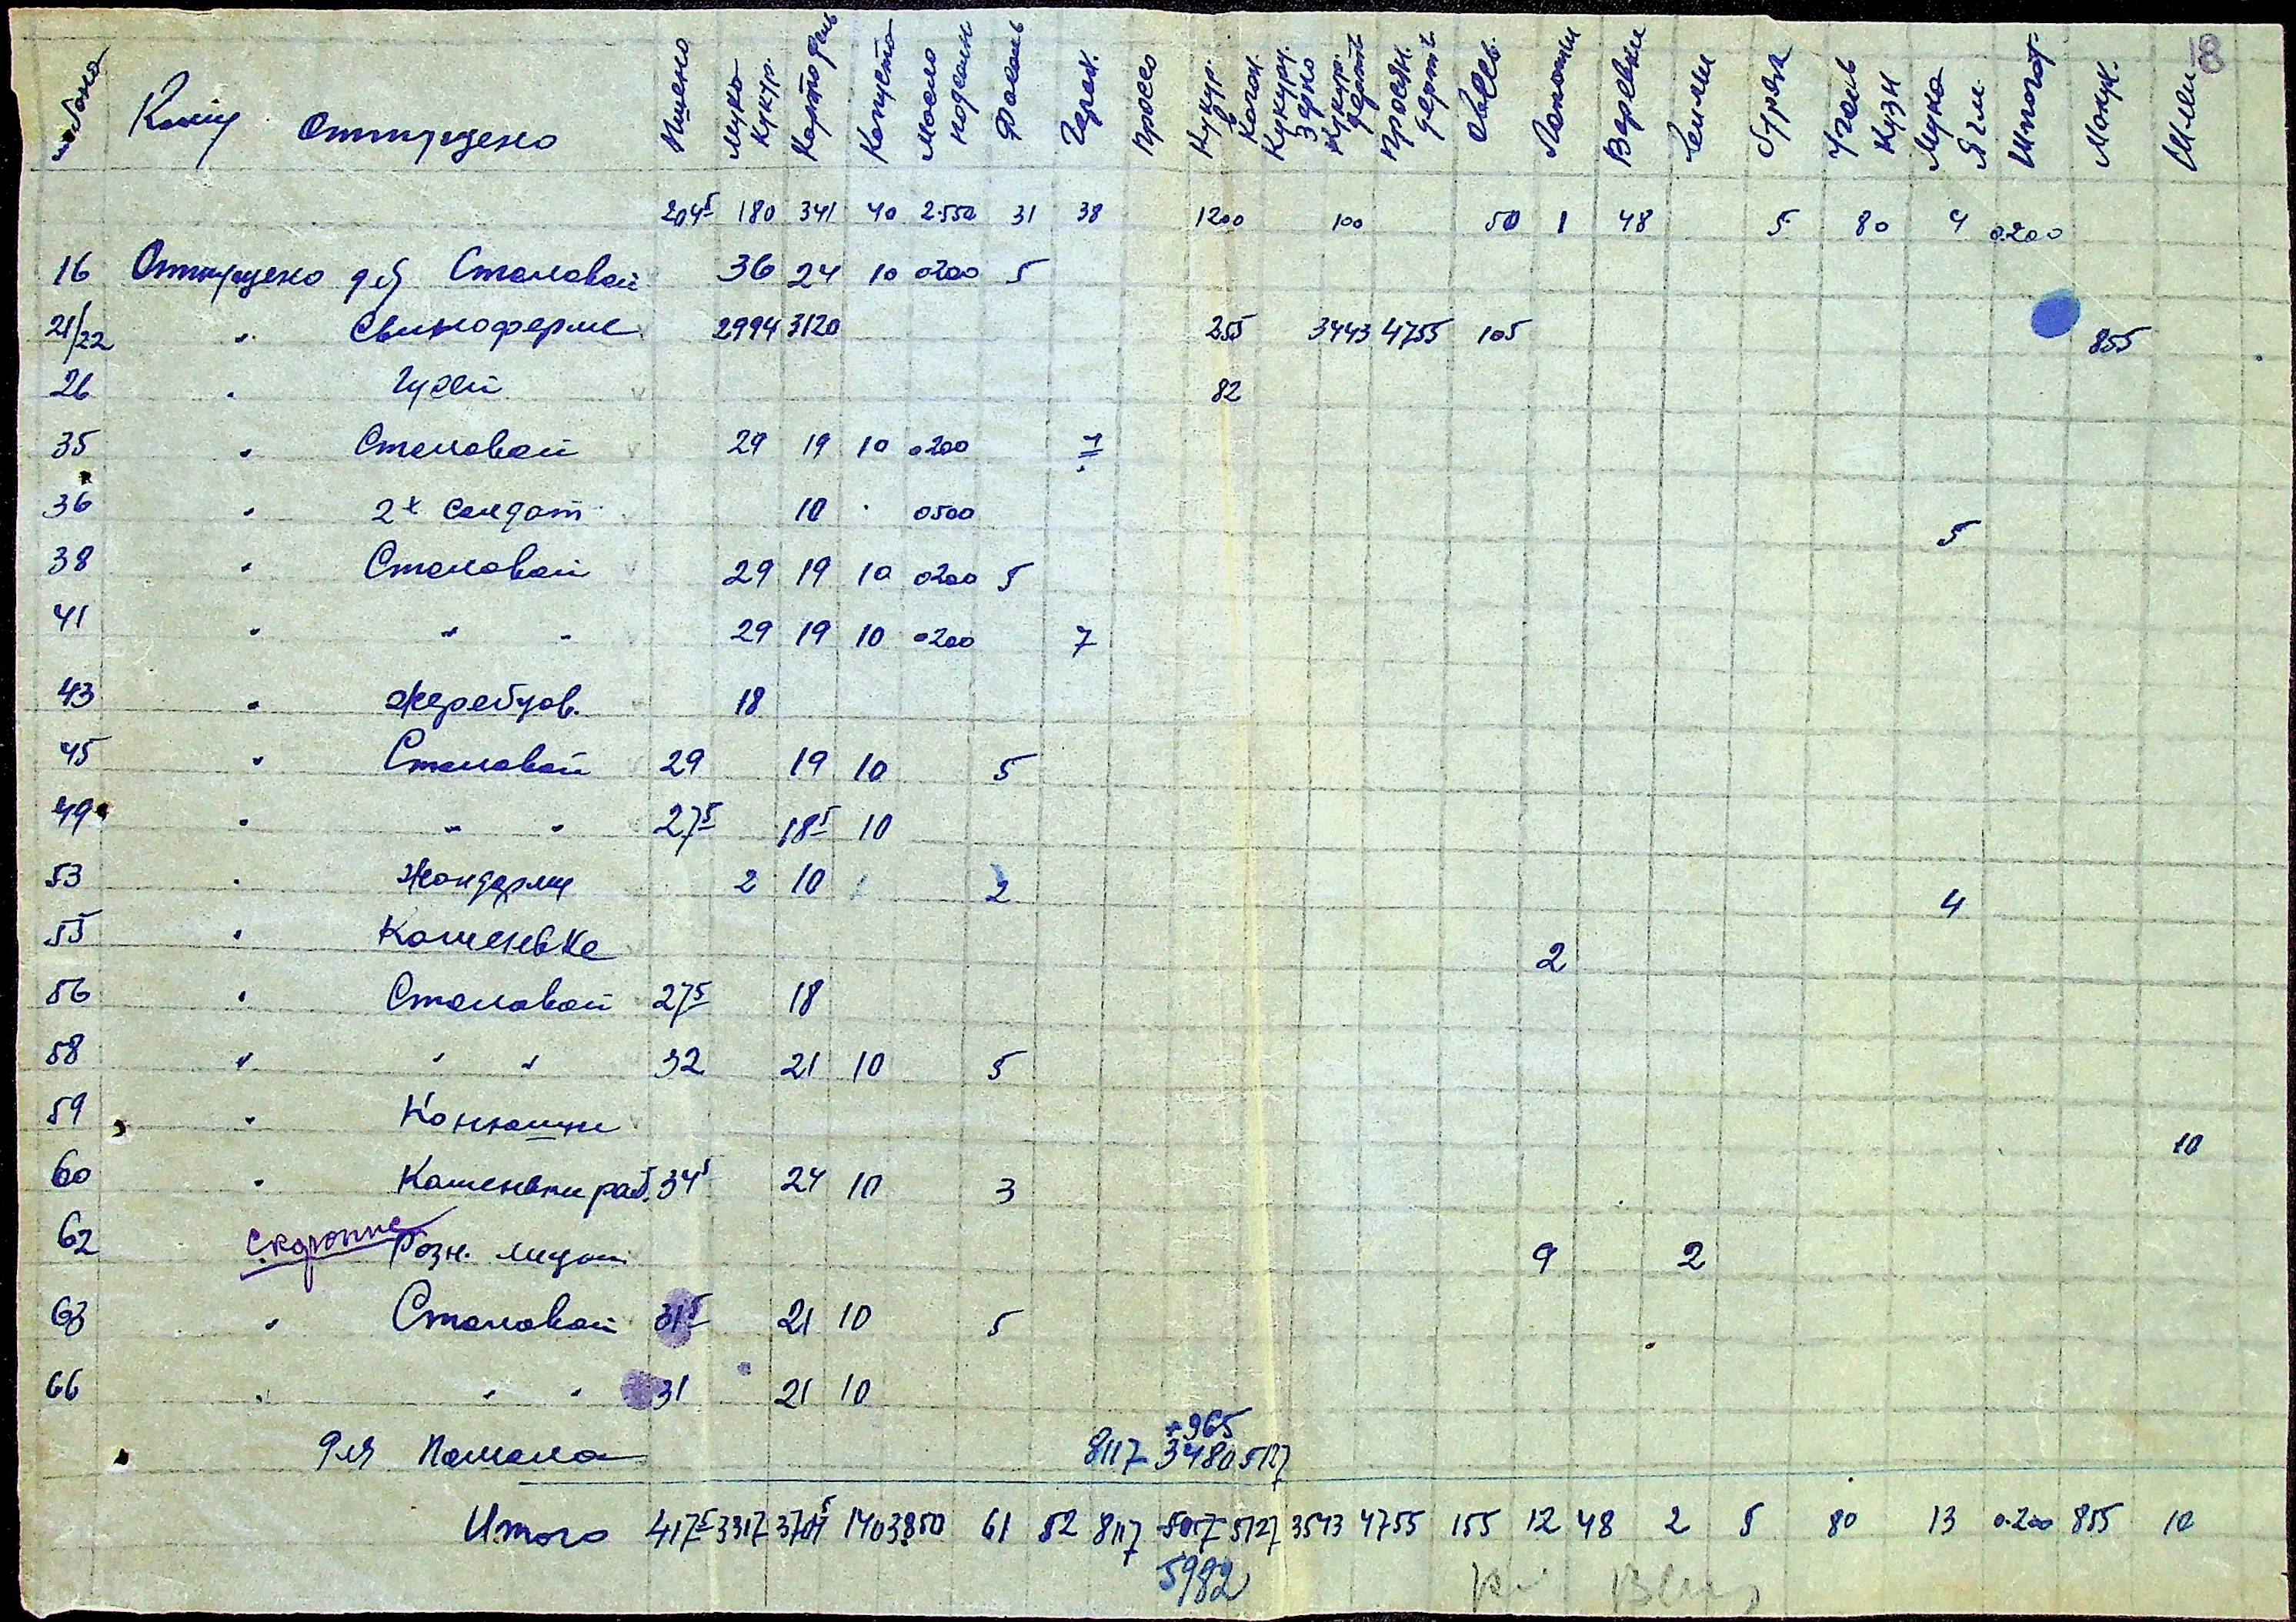 8
Кому Отпущено Пшено Мука кукур. Картофель Капуста Масло подсолн Фасоль Горох. Просо Кукур. в кочан. Кукуруз. Зерно Кукур. дерть Просян. дерть Лопаты Веревки Уголь кузн Мука Ячм. Шпагат. Макух. Шлеи
204⁵ 180 341 40 2.550 31 38 1200 100 50 1 48 5 80 4 0.200
16 Отпущено для Столовой 36 24 10 0200 5
21/22 " Свиноферме 2994 3120 255 3443 4755 105 855
26 " Гусей 82
35 " Столовой 29 19 10 0200 7
36 " 2х солдат 10 0500 5
38 " Столовой 29 19 10 0200 5
41 " " " 29 19 10 0200 7
43 " Жеребцов. 18
45 " Столовой 29 19 10 5
49 " " " 27⁵ 18⁵ 10
53 " Жандарму 2 10 2 4
55 " Каменевке 2
56 " Столовой 27⁵ 18
58 " " " 32 21 10 5
59 " Конюшни 10
60 " Каменевки раб. 34⁵ 24 10 3
62 Разн. лицам 9 2
63 " Столовой 31⁵ 21 10 5
66 " " " 31 21 10
+965
Для Помола 8117 3480 5127
Итого 417⁵ 3317 3704⁵ 140 3850 61 52 8117 5017 5127 3543 4755 155 12 48 2 5 80 13 0.200 855 10
5982